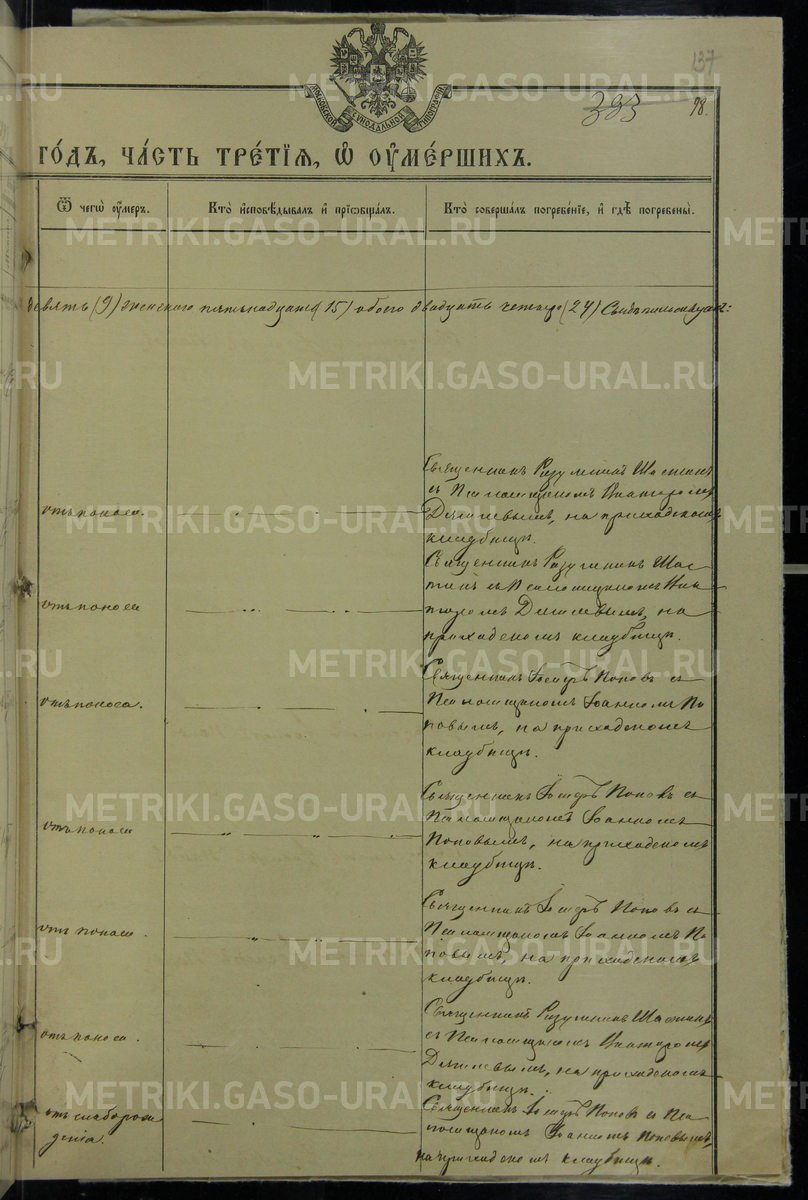 137
333 98.
МОСКОВСКОЙ СѴНОДАЛЬНОЙ ТИПОГРАФІИ
ГО́ДЪ, ЧА́СТЬ ТРЕ́ТІЯ, Ѽ ОУ҆МЕ́РШИХЪ.
Ѿ чегѡ̀ оу҆́меръ.
Кто̀ и҆сповѣ́дывалъ и҆ прїѡбща́лъ.
Кто̀ соверша́лъ погребе́нїе, и҆ гдѣ̀ погребены̀.
девять (9) женскаго пятнадцать (15) обоего двадцать четыре (24)
отъ поноса.
Священникъ Разумникъ Шастинъ
съ Псаломщикомъ Никторомъ
на приходскомъ
кладбищѣ.
отъ поноса
Священникъ Разумникъ Шас-
тинъ съ Псаломщикомъ Ник-
торомъ на
приходскомъ кладбищѣ.
отъ поноса.
Священникъ Іосифъ Поповъ съ
Псаломщикомъ Іоанномъ По-
повымъ, на приходскомъ
кладбищѣ.
отъ поноса
Священникъ Іосифъ Поповъ съ
Псаломщикомъ Іоанномъ
Поповымъ, на приходскомъ
кладбищѣ.
отъ поноса.
Священникъ Іосифъ Поповъ съ
Псаломщикомъ Іоанномъ По-
повымъ, на приходскомъ
кладбищѣ.
отъ поноса.
Священникъ Разумникъ Шастинъ
съ Псаломщикомъ Никторомъ
на приходскомъ
кладбищѣ.
отъ слаборож-
денія.
Священникъ Іосифъ Поповъ съ Пса-
ломщикомъ Іоанномъ Поповымъ,
на приходскомъ кладбищѣ.
METRIKI.GASO-URAL.RU